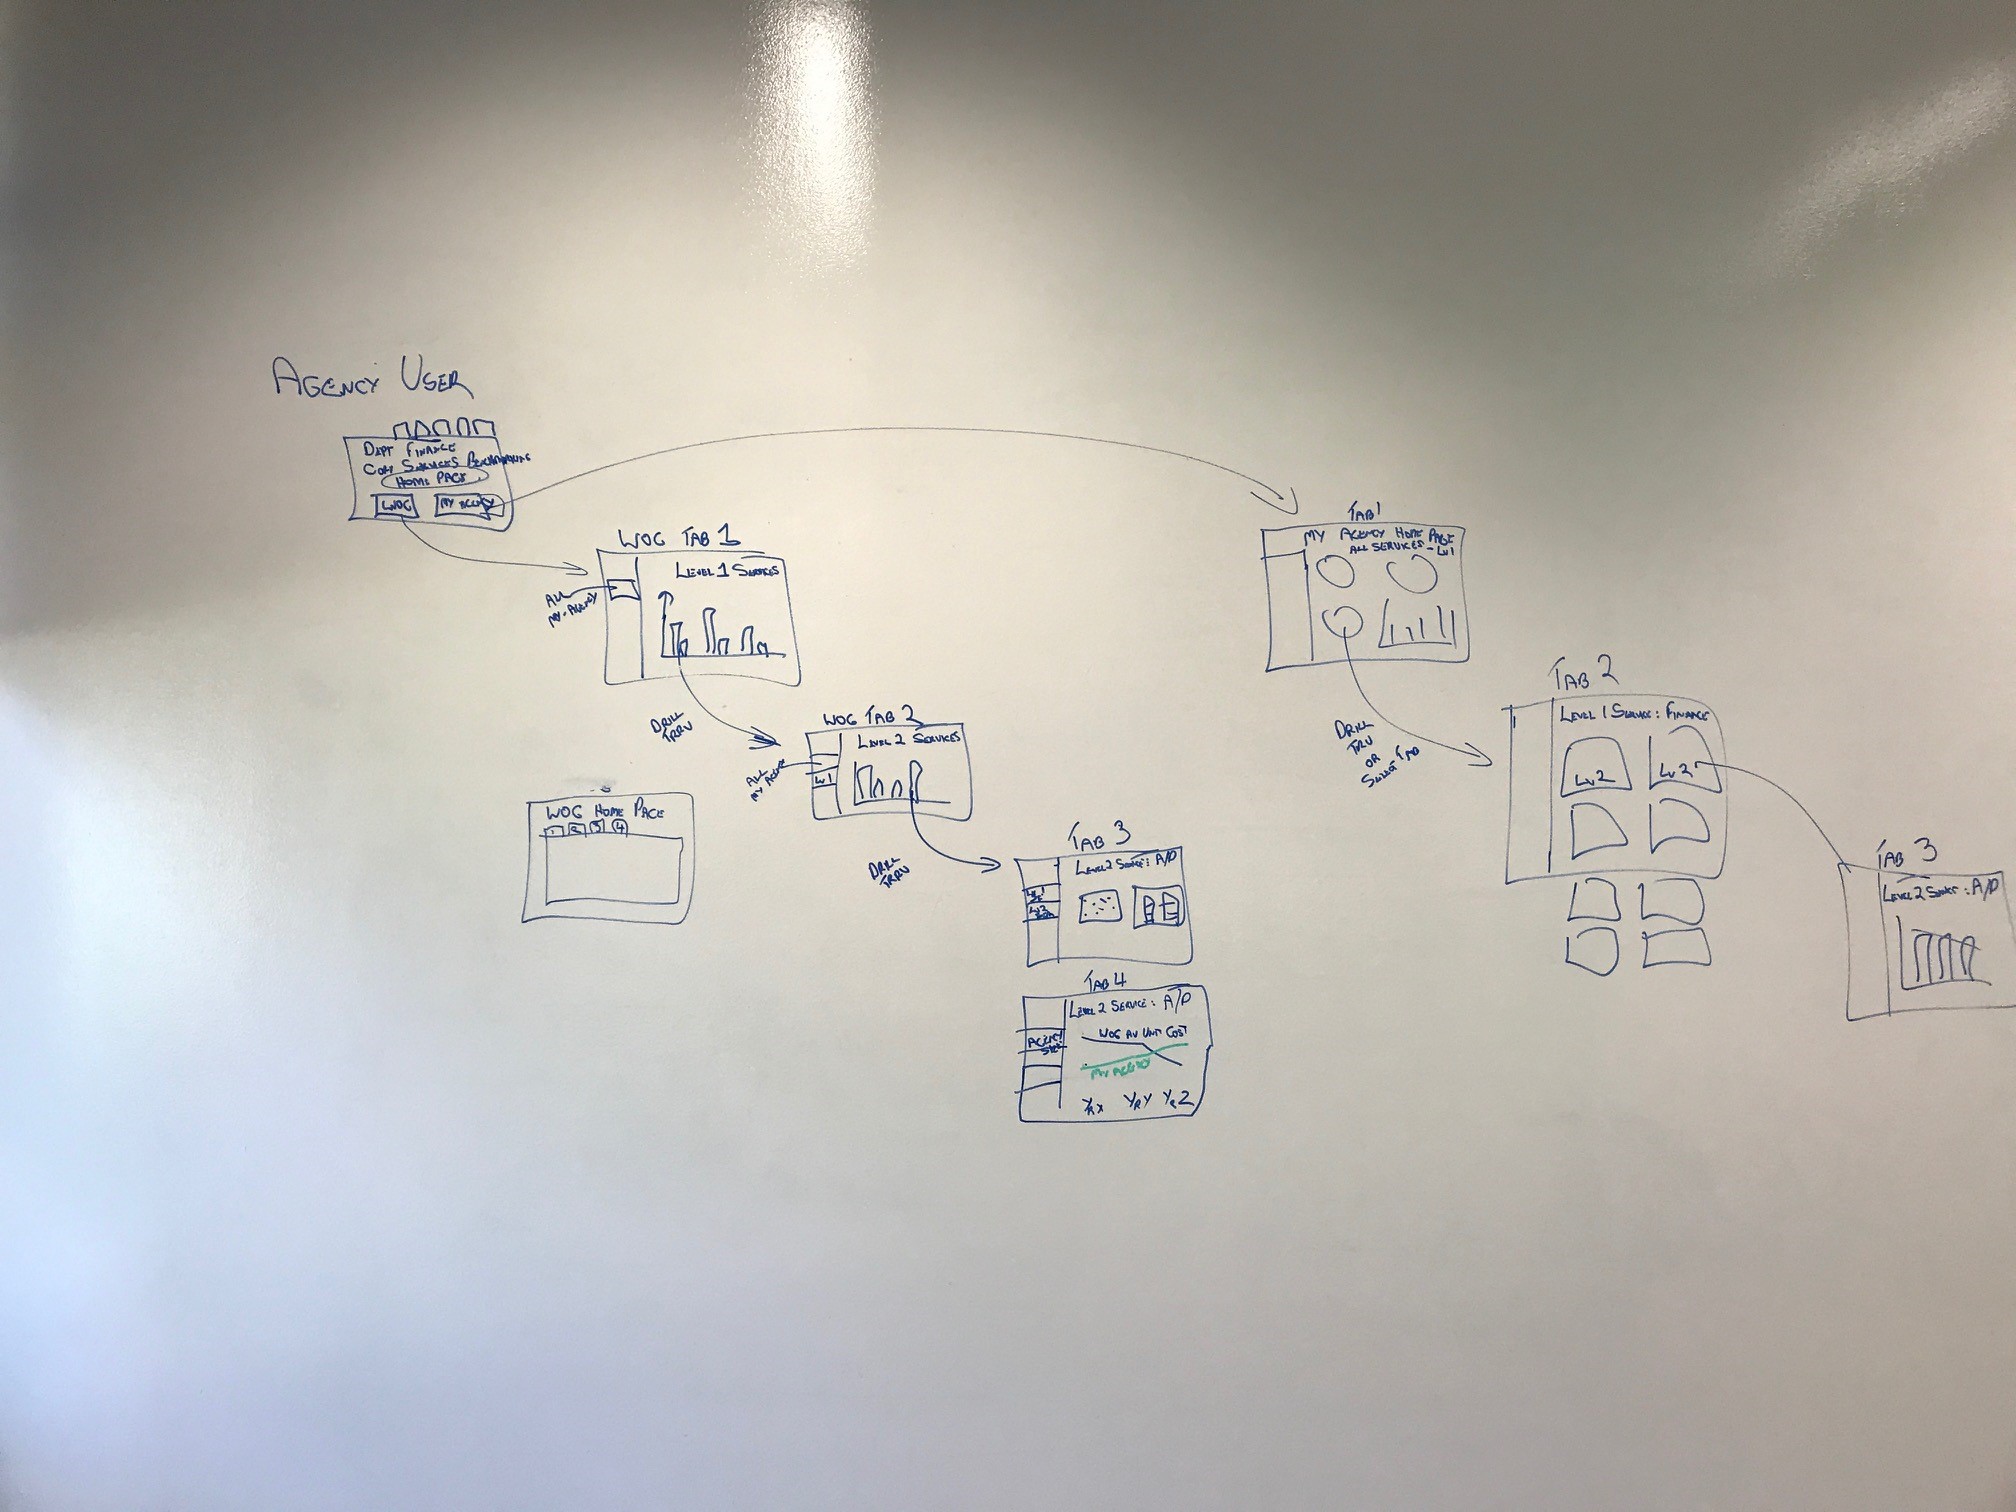 AGENCY USER
DEPT FINANCE
CORP SERVICES BENCHMARKING
HOME PAGE
WOG
MY AGENCY
WOG TAB 1
LEVEL 1 SERVICES
ALL
MY AGENCY
DRILL
TRRU
WOG TAB 2
LEVEL 2 SERVICES
ALL
MY AGENCY
LV1
DRILL
TRRU
WOG HOME PAGE
1 2 3 4
TAB 3
LEVEL 2 SERVICE: A/P
LV 1
LV2
TAB 4
LEVEL 2 SERVICE: A/P
WOG AV UNIT COST
AGENCY
SIZE
MY AGENCY
YR X YR Y YR Z
TAB 1
MY AGENCY HOME PAGE
ALL SERVICES - LV1
DRILL
TRU
OR
SELECT TAB
TAB 2
LEVEL 1 SERVICE: FINANCE
LV2
LV2
TAB 3
LEVEL 2 SERVICE: A/P